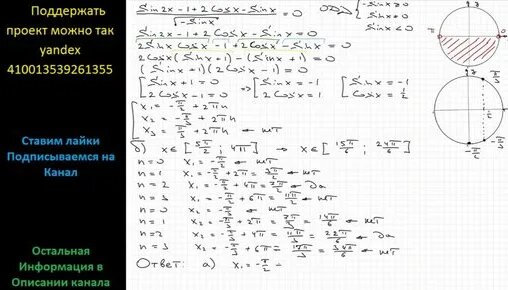 Поддержать
проект можно так
yandex
410013539261355
Ставим лайки
Подписываемся на
Канал
Остальная
Информация в
Описании канала
Sin2x - 1 + 2Cosx - Sinx / √-Sinx = 0
ОДЗ { -Sinx ≥ 0
Sinx ≠ 0
Sinx < 0
Sin2x - 1 + 2Cosx - Sinx = 0
2Sinx Cosx - 1 + 2Cosx - Sinx = 0
2Cosx (Sinx + 1) - (Sinx + 1) = 0
(Sinx + 1)(2Cosx - 1) = 0
[ Sinx + 1 = 0 ⇒ [ Sinx = -1 [ Sinx = -1
[ 2Cosx - 1 = 0 [ 2Cosx = 1 [ Cosx = 1/2
[ x₁ = -π/2 + 2πn
[ x₂ = -π/3 + 2πn
[ x₃ = π/3 + 2πn
б) x ∈ [5π/2 ; 4π] → x ∈ [15π/6 ; 24π/6]
n = 0 x₁ = -π/2
n = 1 x₁ = -π/2 + 2π = 3π/2
n = 2 x₁ = -π/2 + 4π = 7π/2 да
n = 3 x₁ = -π/2 + 6π = 11π/2
n = 0 x₂ = -π/3
n = 1 x₂ = -π/3 + 2π = 5π/3
n = 2 x₂ = -π/3 + 4π = 11π/3 = 22π/6 да
n = 3 x₂ = -π/3 + 6π = 17π/3 = 34π/6
Ответ: а) x₁ = -π/2 +